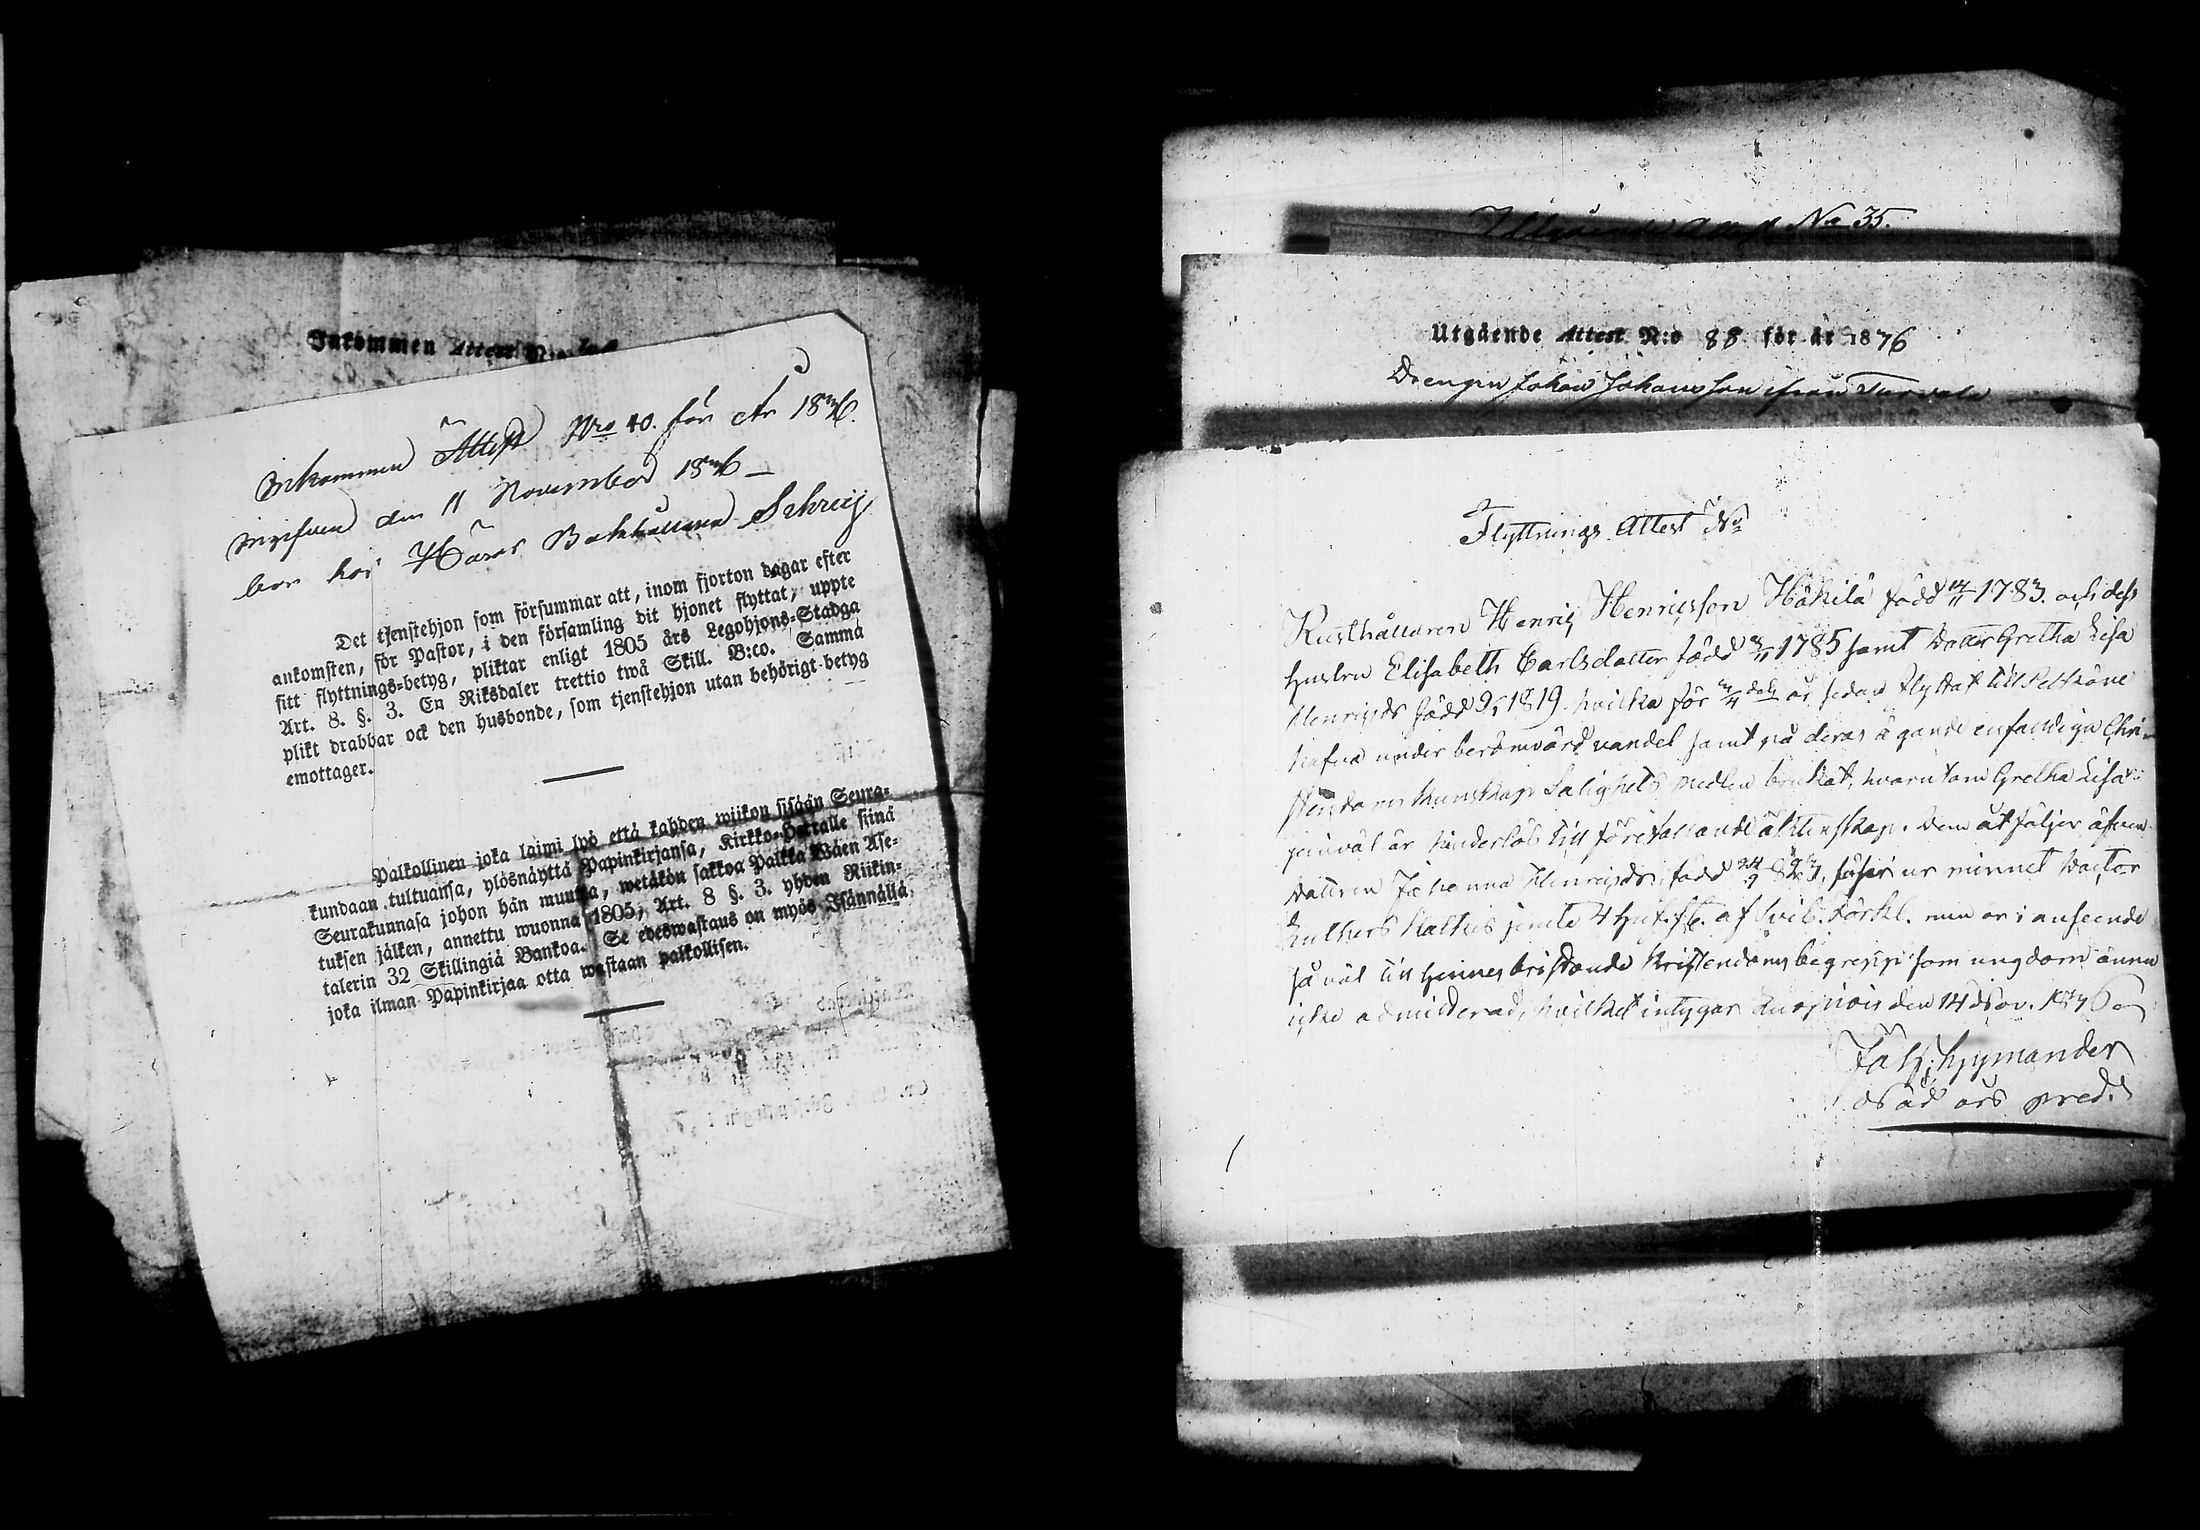 Inkommen Attest N:o
Inkommen Attest Nro 40. för År 1846.
ingifven den 11 November 1846 —
bor hos Härads Bokhållaren Schreij
Det tjenstehjon som försummar att, inom fjorton dagar efter
ankomsten, för Pastor, i den församling dit hjonet flyttat, uppte
sitt flyttnings-betyg, pliktar enligt 1805 års Legohjons-Stadga
Art. 8. §. 3. En Riksdaler trettio twå Skill. B:co. Samma
plikt drabbar ock den husbonde, som tjenstehjon utan behörigt betyg
emottager.
Palkollinen joka laimi lyö että kahden wiikon sisään Seura-
kundaan tultuansa, ylösnäyttä Papinkirjansa, Kirkko-Herralle siinä
Seurakunnasa johon hän muutta, wetäkön sakkoa Palkka Wäen Ase-
tuksen jälken, annettu wuonna 1805, Art. 8 §. 3. yhden Riikin-
talerin 32 Skillingiä Bankoa. Se edeswastaus on myös Isännällä,
joka ilman Papinkirjaa otta wastaan palkollisen.
No 35.
Utgående Attest N:o 88 för år 1846
Drengen Johan Johansson ifrån
Flyttnings Attest No
Rusthållaren Henric Henricsson Häkilä född 1783. och dess
hustru Elisabeth Carlsdotter född 1785 samt Dotter Gretha Lisa
Henricsdr född 1819. hvilka för år sedan flyttat till
hafva under berömvärd vandel samt på deras ägande enfaldiga Chri-
stendoms kunskap Salighets medlen brukat, hvarutom Gretha Lisa
jemväl är hinderlös till förefallande äktenskap. Dem åtföljer äfven
Dottren Johanna Henricsdr, född läser ur minnet Doctor
Luthers Katkes jemte 4 af Sveb. förkl. men är i anseende
så väl till hennes bristande Kristendoms begrepp som ungdom ännu
icke admitterad, hvilket intygar den 14 Nov. 1846
Hymander
Nåd års pred.